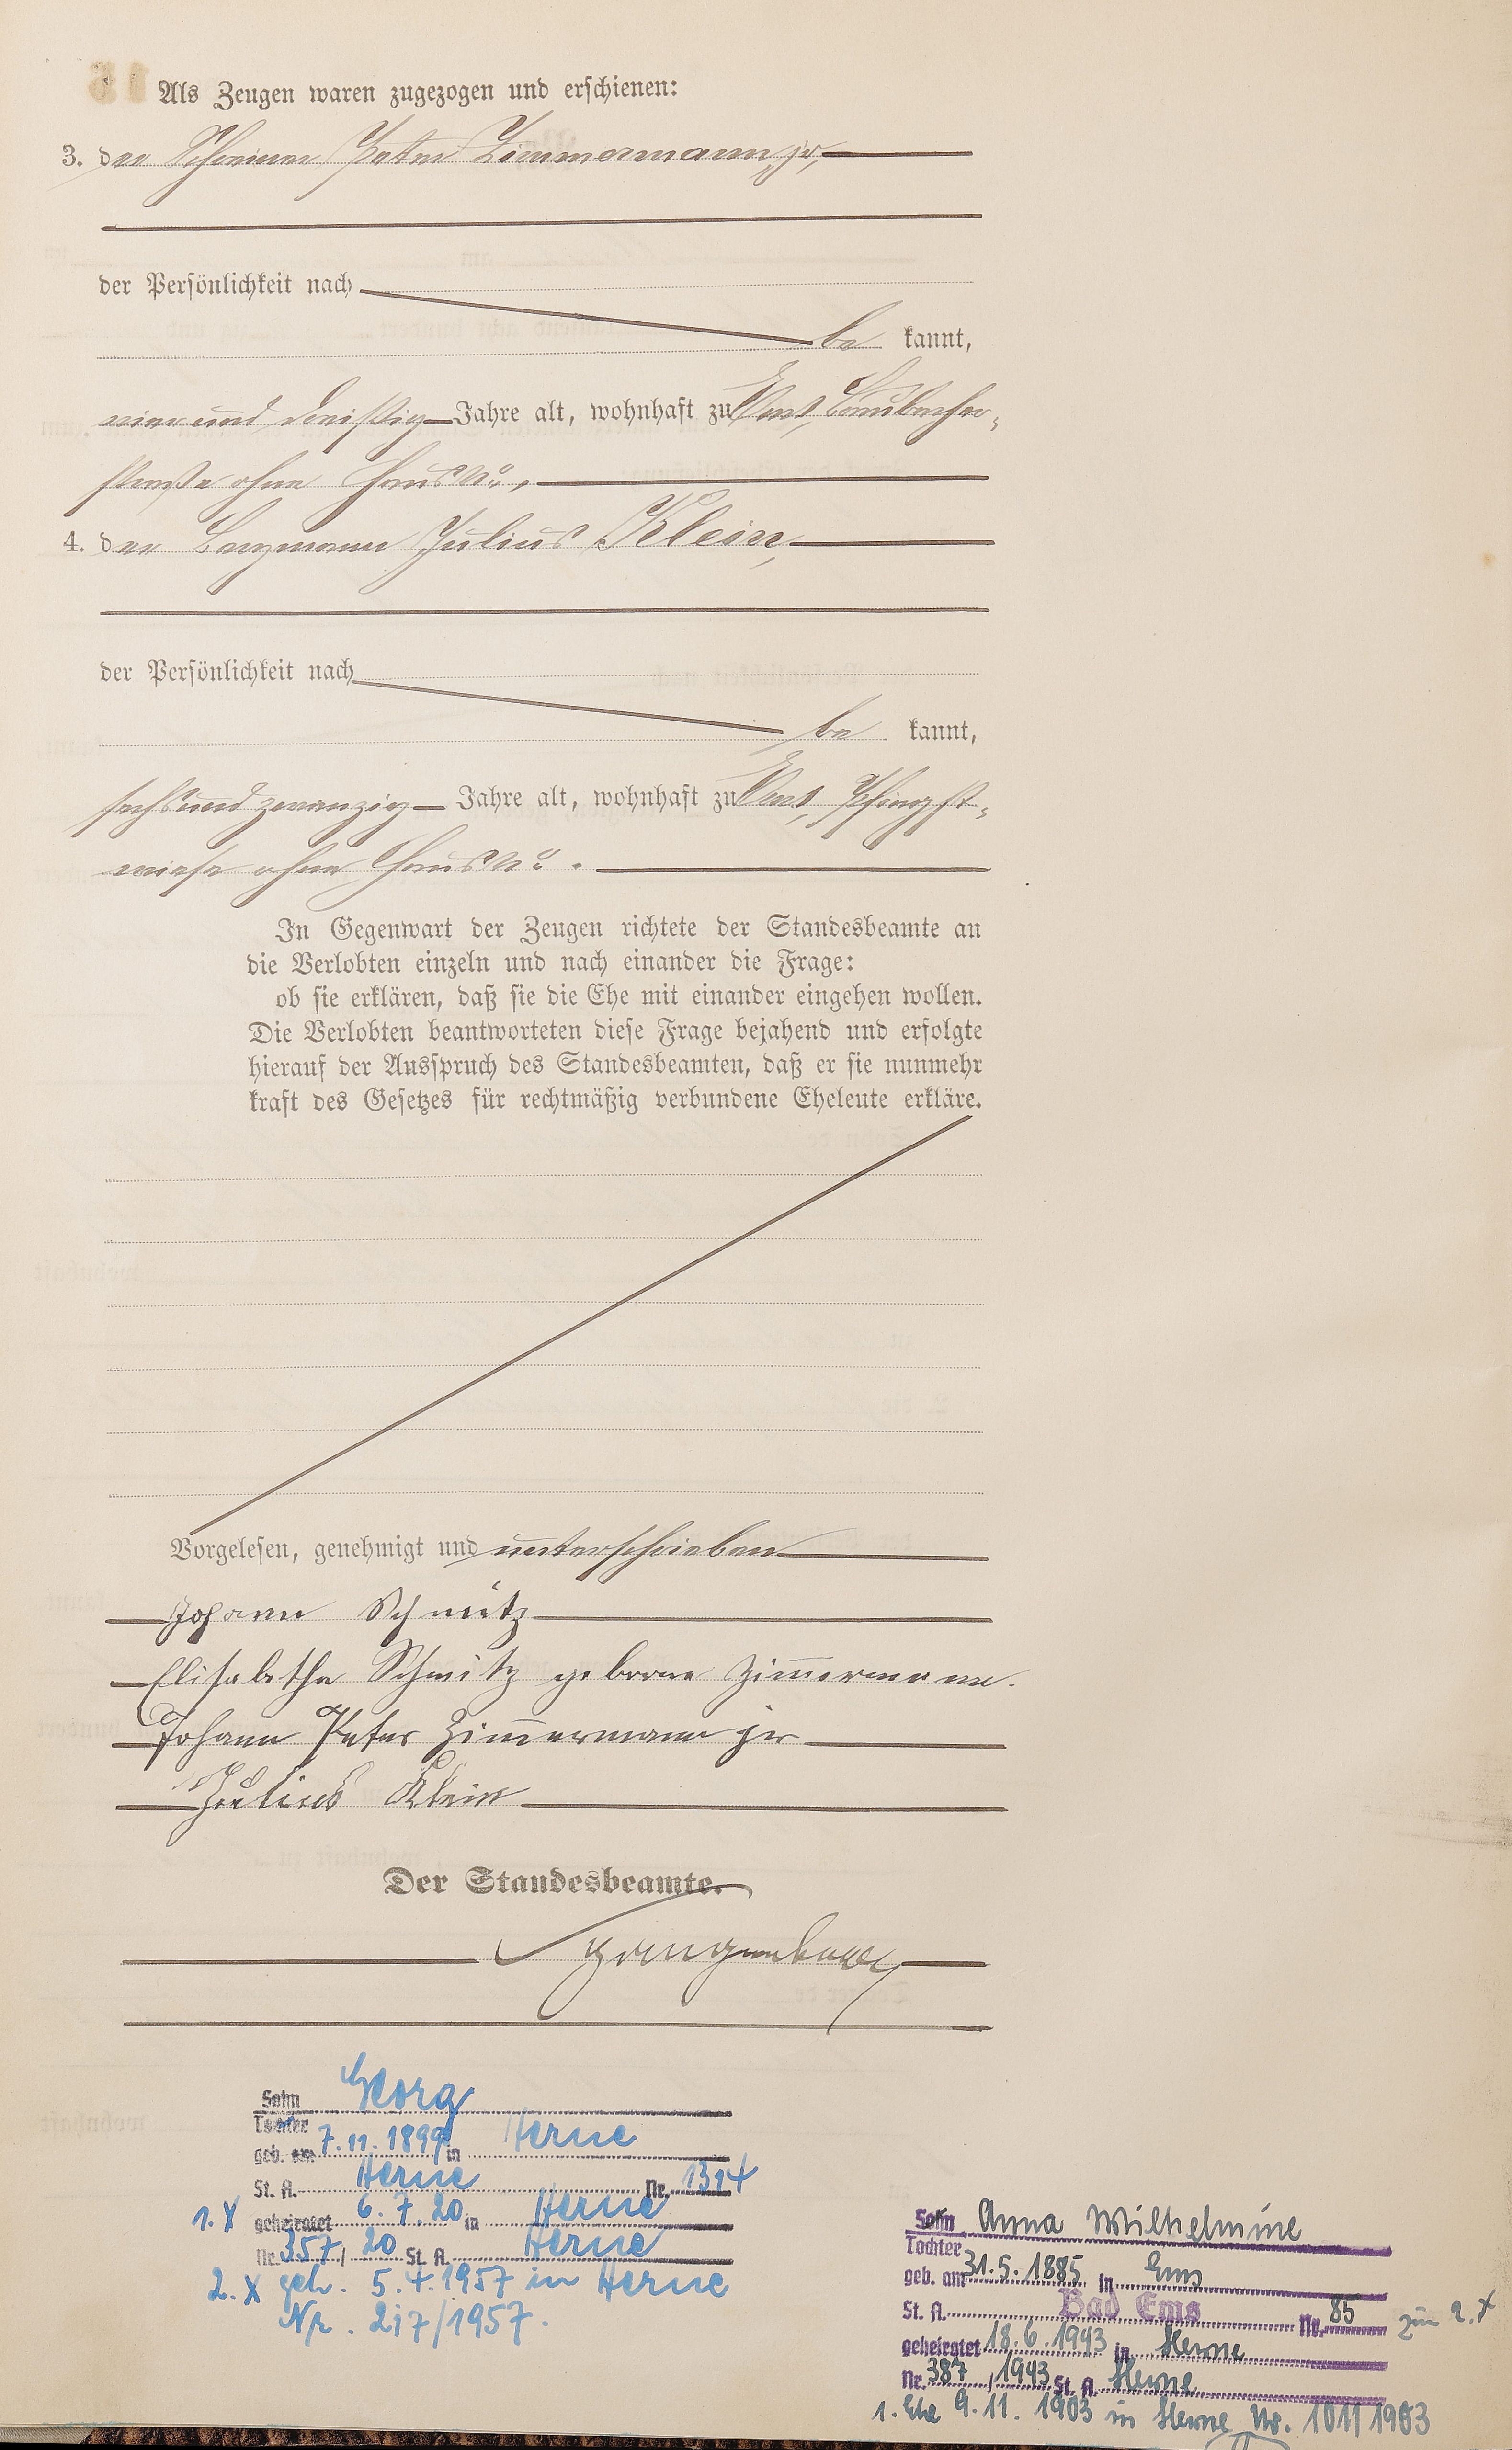 Als Zeugen waren zugezogen und erschienen:
3. der Schreiner Peter Zimmermann, jr,
der Persönlichkeit nach
be kannt,
vier und dreißig Jahre alt, wohnhaft zu Ems, Braubacher-
straße ohne Haus No,
4. der Bergmann Julius Klein,
der Persönlichkeit nach
be kannt,
sechs und zwanzig Jahre alt, wohnhaft zu Ems, Pfingst-
wiese ohne Haus No.
In Gegenwart der Zeugen richtete der Standesbeamte an
die Verlobten einzeln und nach einander die Frage:
ob sie erklären, daß sie die Ehe mit einander eingehen wollen.
Die Verlobten beantworteten diese Frage bejahend und erfolgte
hierauf der Ausspruch des Standesbeamten, daß er sie nunmehr
kraft des Gesetzes für rechtmäßig verbundene Eheleute erkläre.
Vorgelesen, genehmigt und unterschrieben
Johann Schmitz
Elisabetha Schmitz geborne Zimmermann.
Johann Peter Zimmermann jr
Julius Klein
Der Standesbeamte.
Sohn Georg
Tochter
geb. am 7.11.1899 in Herne
St. A. Herne Nr. 1314
1. X geheiratet 6.7.20 in Herne
Nr. 357 / 20 St. A. Herne
2. X geh. 5.4.1957 in Herne
Nr. 217/1957.
Sohn Anna Wilhelmine
Tochter
geb. am 31.5.1885 in Ems
St. A. Bad Ems Nr. 85
geheiratet 18.6.1943 in Herne zum 2. X
Nr. 387 / 1943 St. A. Herne
1. Ehe 9.11.1903 in Herne Nr. 101/1903